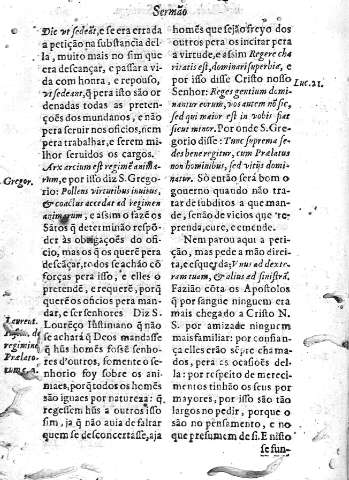 Sermão
Die vt sedeāt, e se era errada
a petição na substancia del-
la, muito mais no fim que
era descançar, e passar a vi-
da com honra, e repouso,
vt sedeant, q̃ pera isto são or-
denadas todas as preten-
ções dos mundanos, e não
pera seruir nos officios, nem
pera trabalhar, e serem mi-
lhor seruidos os cargos.
Ars arcium est regimē anima-
rum, e por isso diz S. Grego-
Gregor.
rio: Pollens virtutibus inuitus,
& coactus accedat ad regimen
animarum, e assim o fazē os
Sātos q̃ determinão respõ-
der às obrigações do offi-
cio, mas os q̃ querē pera
descāçar, todos se achão cõ
forças pera isso, e elles o
pretendē, e requerē, porq̃
querē os officios pera man-
dar, e ser senhores Diz S.
Laurent.
Lourēço Iustiniano q̃ não
Iustin. de
se acharà q̃ Deos mandasse
regimine
q̃ hũs homēs fossē senho-
Prælato-
res d'outros, somente o se-
rum c. 2.
nhorio foy sobre os ani-
maes, porq̃ todos os homēs
são iguaes por natureza: q̃
regessem hũs a outros isso
sim, ja q̃ não auia de faltar
quem se desconcertasse, aja
homēs que sejão freyo dos
outros pera os incitar pera
a virtude, e assim Regere cha
ritatis est, dominari superbiæ, e
por isso disse Cristo nosso
Luc. 21.
Senhor: Reges gentium domi-
nantur eorum, vos autem nō sic,
sed qui maior est in vobis fiat
sicut minor. Por onde S. Gre-
gorio disse: Tunc suprema se-
des bene regitur, cum Prælatus
non hominibus, sed vitijs domi-
natur. Só então será bom o
gouerno quando não tra-
tar de subditos a que man-
de, senão de vicios que re-
prenda, cure, e emende.
Nem parou aqui a peti-
ção, mas pede a mão direi-
ta, e esquerda: Vnus ad dexte-
ram tuam, & alius ad sinistrā.
Fazião cõta os Apostolos
q̃ por sangue ninguem era
mais chegado a Cristo N.
S. por amizade ninguem
mais familiar: por confian-
ça elles erão sēpre chama-
dos, pera as ocasiões del-
la: por respeito de mereci-
mentos tinhão os seus por
mayores, por isso são tão
largos no pedir, porque o
são no pensamento, e no
que presumem de si. E nisto
se fun-